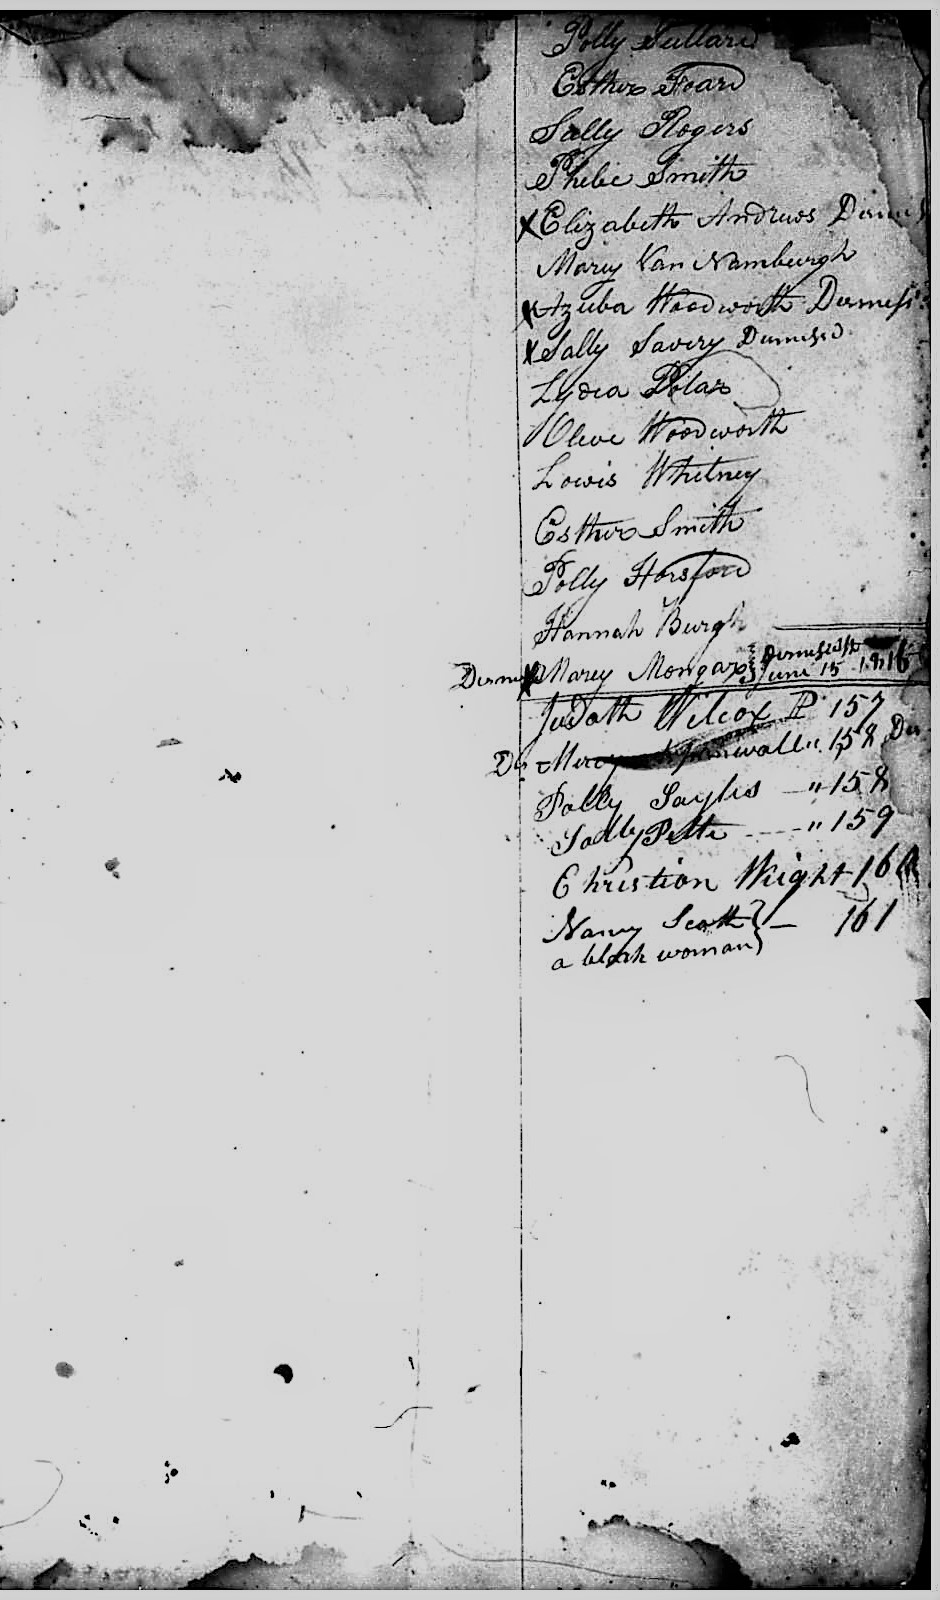 Polly Sullard
Esther Foard
Sally Rogers
Phebe Smith
X Elizabeth Andrus
Marey Van Namburgh
X Azuba Woodworth Dismiss
X Sally Savery Dismissd
Lydia Polar
Olive Woodworth
Lowis Whitney
Esther Smith
Polly Horsford
Hannah Burgh
X Marey Mongar June 15 1816
Judath Wilcox P 157
Mercy " 158
Polly Sayles — " 158
Sally Pette — " 159
Christion Wright 160
Nancy Scott — 161
a black woman